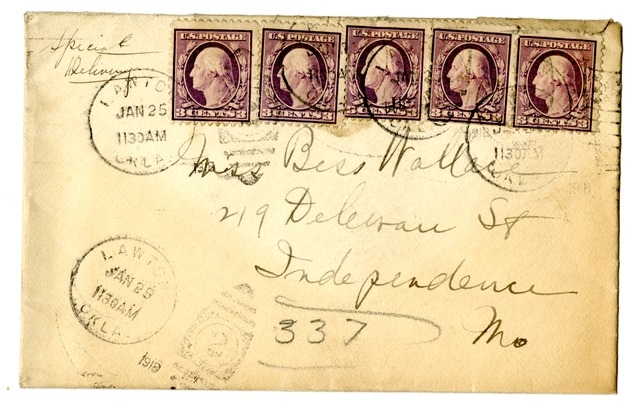 Special
Delivery
U.S. POSTAGE U.S. POSTAGE U.S. POSTAGE U.S. POSTAGE U.S. POSTAGE
3 CENTS 3 3 CENTS 3 3 CENTS 3 3 CENTS 3 3 CENTS 3
LAWTON
JAN 25
1130AM
OKLA.
1130AM
1918
Miss Bess Wallace
219 Delewan St
Independence
Mo
337
LAWTON
JAN 25
1130AM
OKLA.
1918
2